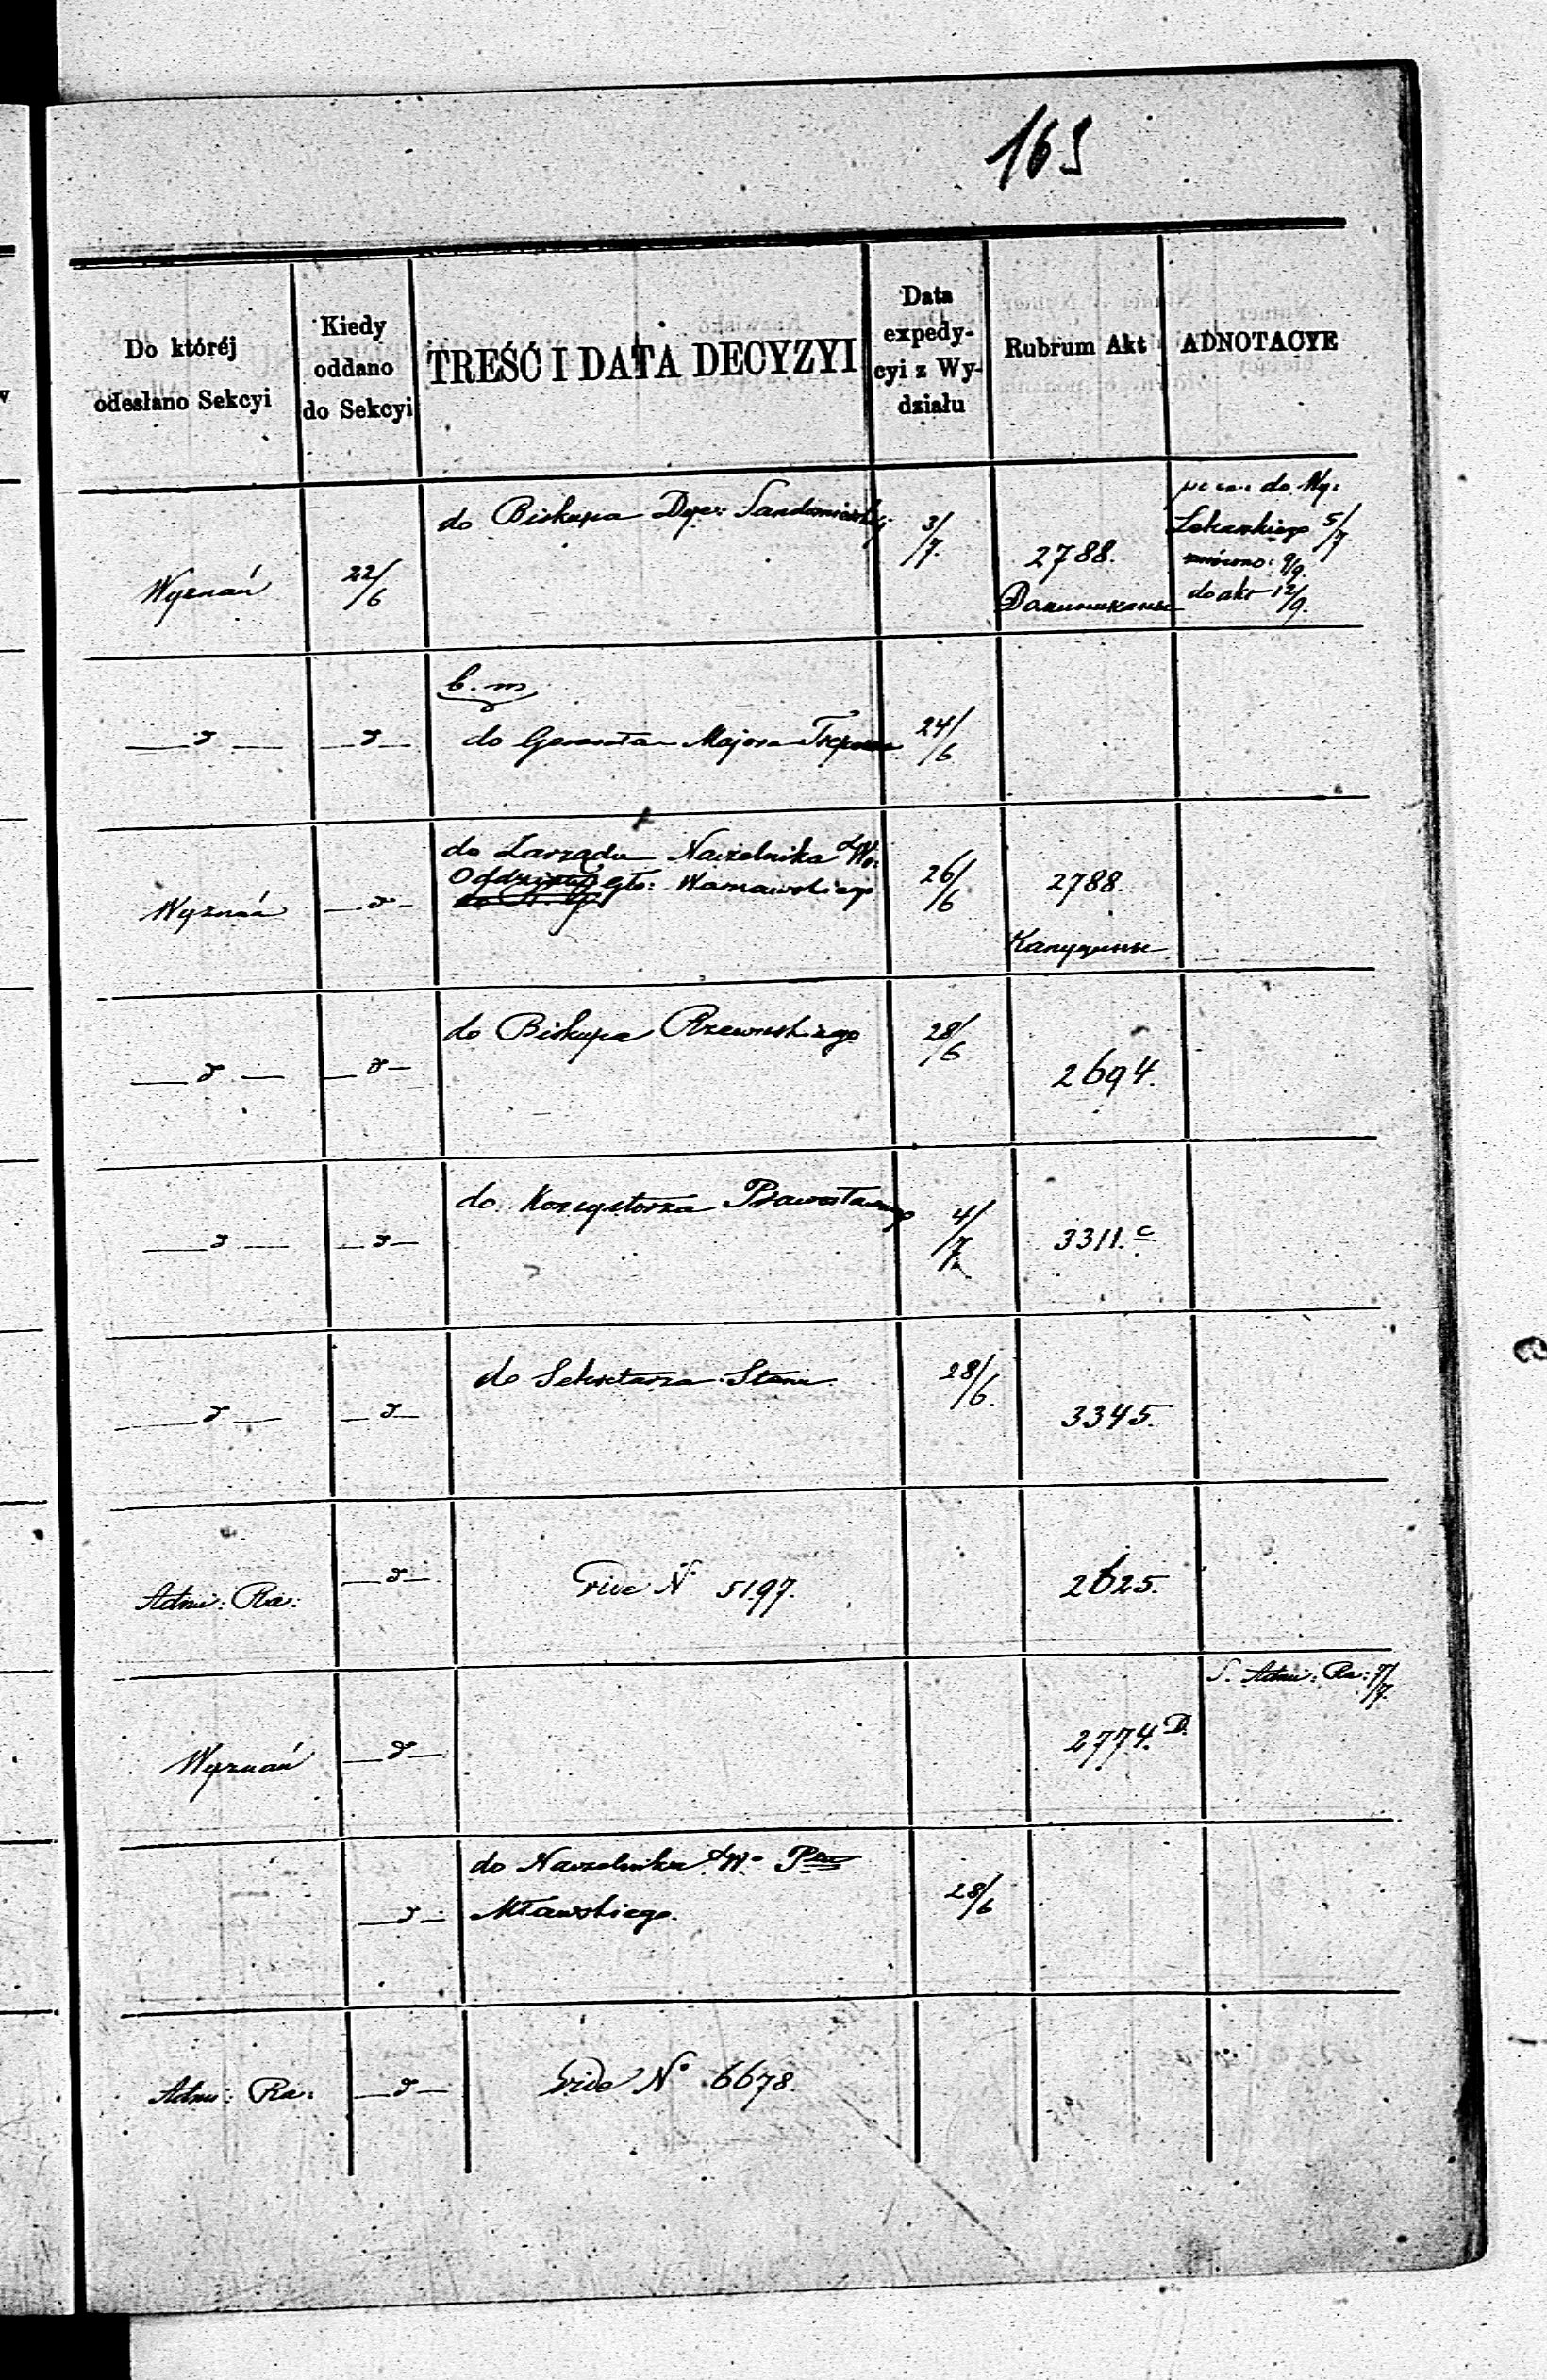 163
Do któréj
odesłano Sekcyi
Kiedy
oddano
do Sekcyi
TREŚĆ I DATA DECYZYI
Data
expedy-
cyi z Wy-
działu
Rubrum Akt
ADNOTACYE
Wyznań
22/6
do Biskupa Dyec: Sandomierskiej
3/7.
2788.
do Wy:
Lekarskiego 5/7
zwrócono: 9/9.
do akt 12/9.
d
d
b. m
do Generała Majora Trepowa
24/6
Wyznań
d
do Zarządu Naczelnika Wo:
Oddziału Gło: Warszawskiego
26/6
2788.
d
d
do Biskupa Rzewuskiego
28/6
2694.
d
d
do Konsystorza Prawosławnego
4/7
3311. c
d
d
do Sekretarza Stanu
28/6.
3345.
Admi: Re:
d
vide N° 5197.
2625.
Wyznań
d
2774. D.
S. Admi: Re: 7/7.
d
do Naczelnika Wo Ptu
Mławskiego.
28/6
Admi: Re:
d
vide N° 6678.